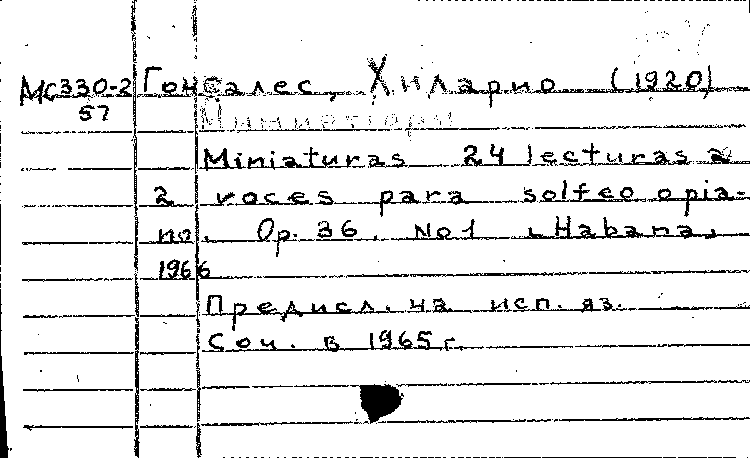 МС330-2 Гонсалес, Хиларио (1920)
57 Миниатюры
Miniaturas 24 lecturas a
2 voces para solfeo o pia-
no. Op. 36. No 1 Habana,
1966
Предисл. на исп. яз.
Соч. в 1965 г.